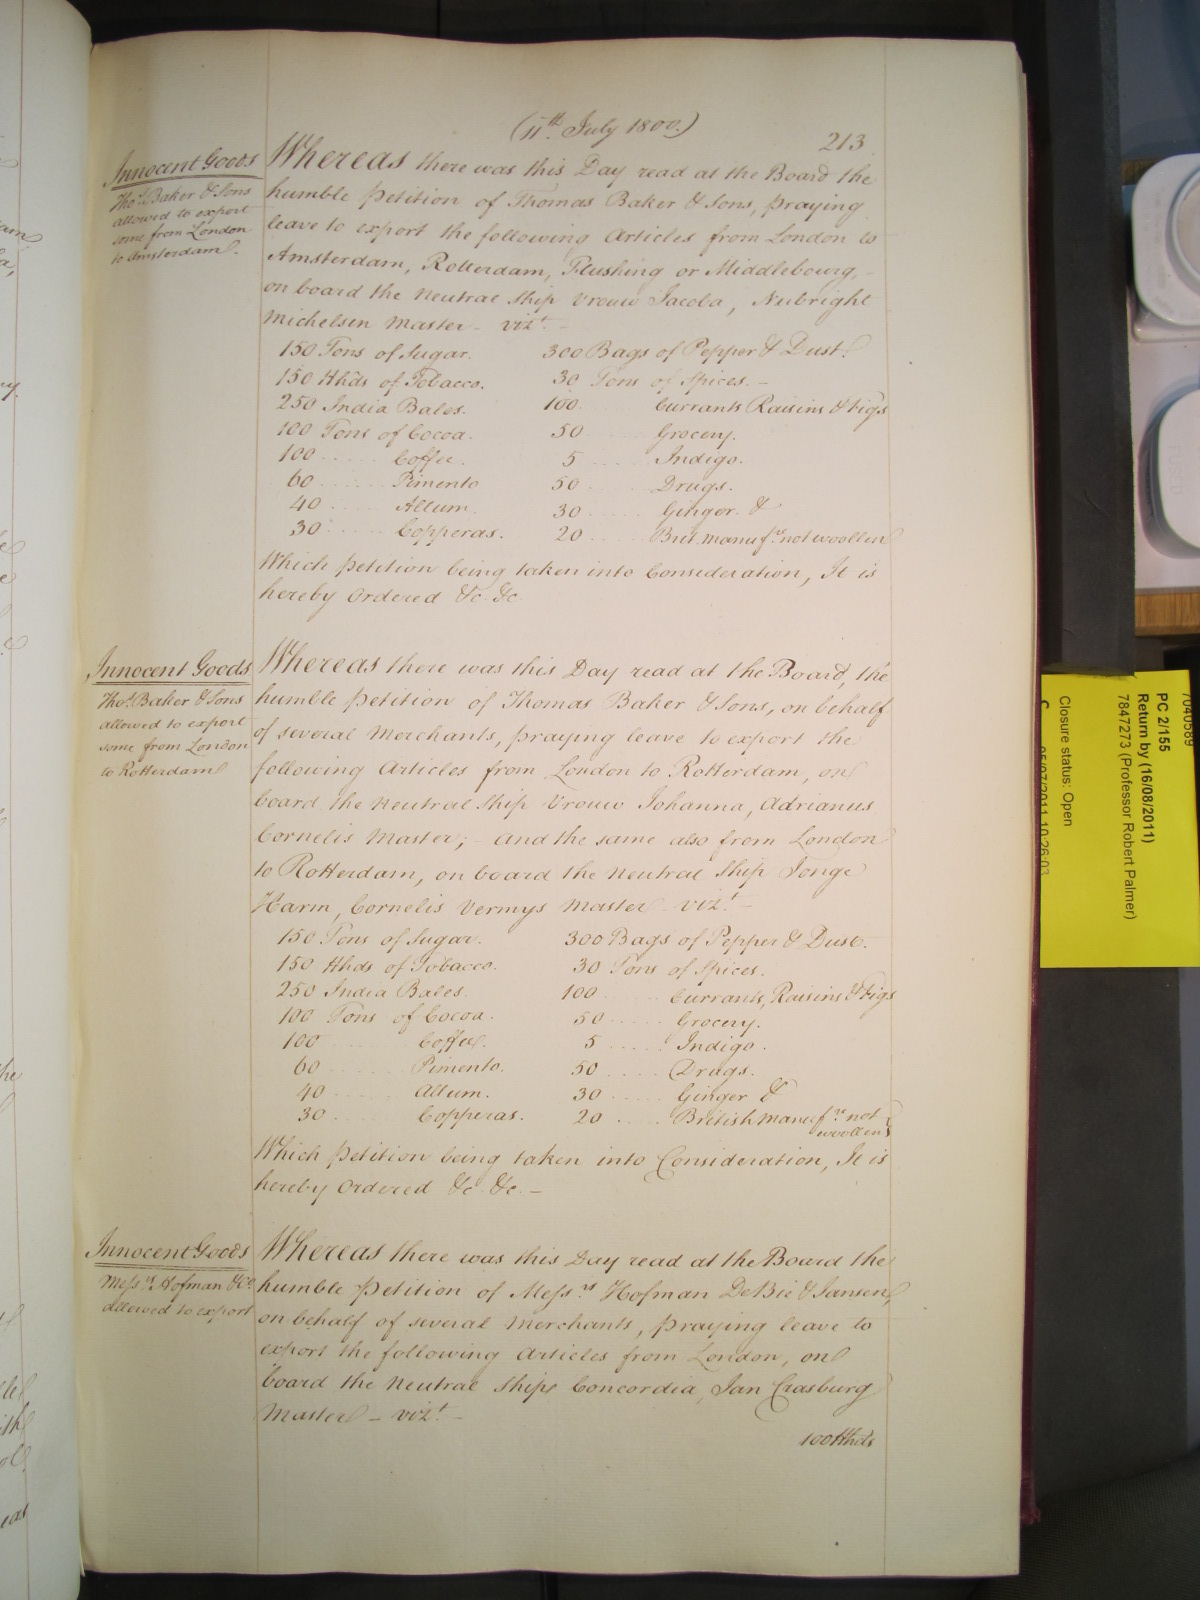 (11th. July 1800.)
213
Innocent Goods
Thos. Baker & Sons
allowed to export
some from London
to Amsterdam.
Whereas there was this Day read at the Board the
humble Petition of Thomas Baker & Sons, praying
leave to export the following Articles from London to
Amsterdam, Rotterdam, Flushing or Middlebourg, -
on board the Neutral Ship Vrouw Jacoba, Nubright
Michelsen Master - vizt. -
150 Tons of Sugar. 300 Bags of Pepper & Dust.
150 Hhds of Tobacco. 30 Tons of Spices. -
250 India Bales. 100 Currants Raisins & Figs
100 Tons of Cocoa. 50 ..... Grocery.
100 ..... Coffee. 5 ..... Indigo.
60 ..... Pimento 50 ..... Drugs.
40 ..... Allum. 30 ..... Ginger. &
30 ..... Copperas. 20 ..... Brit. manufres. not woollen
Which Petition being taken into Consideration, It is
hereby Ordered &c. &c.
Innocent Goods
Thos. Baker & Sons
allowed to export
some from London
to Rotterdam
Whereas there was this Day read at the Board, the
humble Petition of Thomas Baker & Sons, on behalf
of several Merchants, praying leave to export the
following Articles from London to Rotterdam, on
board the Neutral Ship Vrouw Johanna, Adrianus
Cornelis Master; - And the same also from London
to Rotterdam, on board the Neutral Ship Jonge
Harm, Cornelis Vermys Master vizt. -
150 Tons of Sugar. 300 Bags of Pepper & Dust.
150 Hhds of Tobacco. 30 Tons of Spices.
250 India Bales. 100 Currants, Raisins & Figs
100 Tons of Cocoa. 50 ..... Grocery.
100 ..... Coffee. 5 ..... Indigo.
60 ..... Pimento. 50 ..... Drugs.
40 ..... Allum. 30 ..... Ginger &
30 ..... Copperas. 20 ..... British manufres. not
woollen
Which Petition being taken into Consideration, It is
hereby Ordered &c. &c. -
Innocent Goods
Messrs. Hofman & Co.
allowed to export
Whereas there was this Day read at the Board the
humble Petition of Messrs. Hofman DeBie & Jansen,
on behalf of several Merchants, praying leave to
export the following Articles from London, on
board the Neutral Ships Concordia, Jan Crasburg
Master - vizt. -
100 Hhds
PC 2/155
Return by (16/08/2011)
7847273 (Professor Robert Palmer)
Closure status: Open